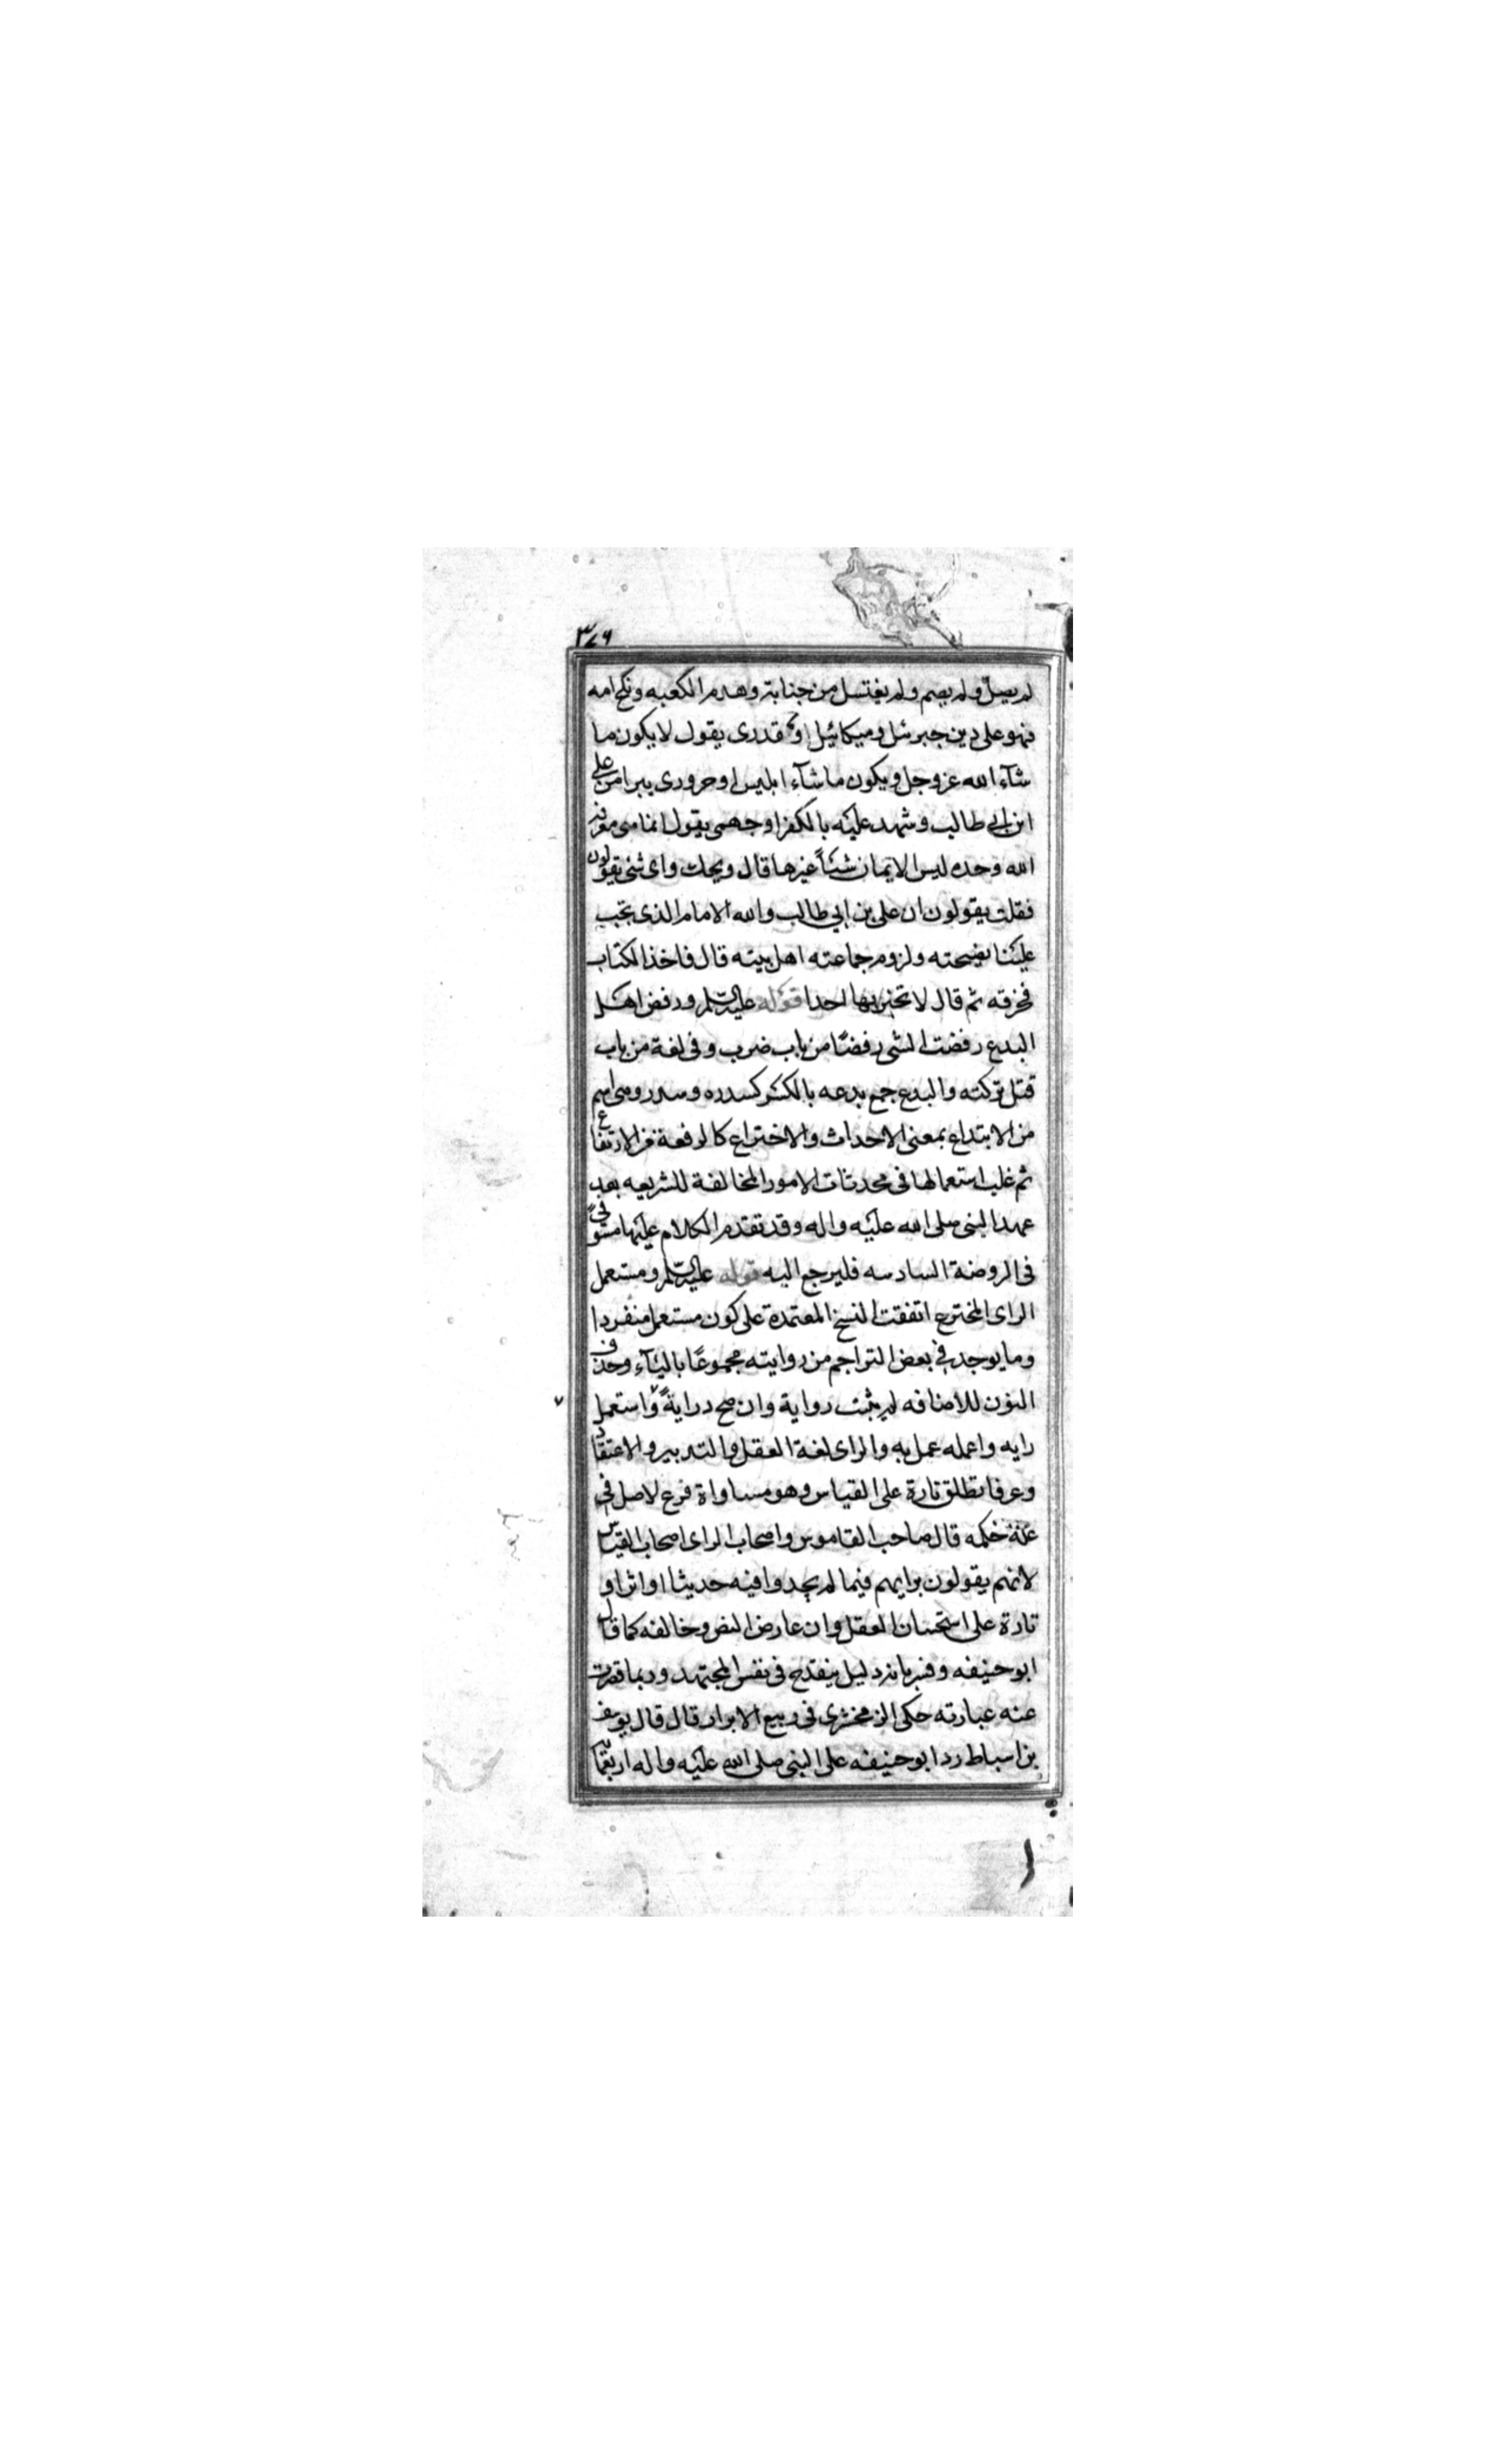 ٣٧٦
لم يصل ولم يصم ولم يغتسل من جنابة وهدم الكعبه ونكح امه
فهو على دين جبرئيل وميكائيل او قدرى يقول لا يكون ما
شآء الله عز وجل ويكون ما شآء ابليس او حرورى يبرا من على
ابن ابى طالب وشهد عليه بالكفر او جهمى يقول انما هى معرفة
الله وحده ليس الايمان شئاً غيرها قال ويحك واى شئ يقولون
فقلت يقولون ان على بن ابي طالب والله الامام الذى يجب
علينا نصيحته ولزوم جماعته اهل بيته قال فاخذ الكتاب
فخرقه ثم قال لا تخبر بها احدا قوله عليه السلم ورفض اهل
البدع رفضت الشى رفضًا من باب ضرب وفى لغة من باب
قتل تركته والبدع جمع بدعه بالكسر كسدره وسدر وهى اسم
من الابتداع بمعنى الاحداث والاختراع كالرفعة من الارتفاع
ثم غلب استعمالها فى محدثات الامور المخالفة للشريعه بعد
عهد النبى صلى الله عليه واله وقد تقدم الكلام عليها مستوفىً
فى الروضة السادسه فليرجع اليه قوله عليه السلم ومستعمل
الراى المخترع اتفقت النسخ المعتمدة على كون مستعمل منفردا
وما يوجد في بعض التراجم من روايته مجموعًا باليآء وحذف
النون للاضافه لم يثبت رواية وان صح درايةً واستعمل
رايه واعمله عمل به والراى لغة العقل والتدبير والاعتقاد
وعرفا يطلق تارة على القياس وهو مساواة فرع لاصل في
علة حكمه قال صاحب القاموس واصحاب الراى اصحاب القياس
لانهم يقولون برايهم فيما لم يجدوا فيه حديثا او اثرا و
تارة على استحسان العقل وان عارض النص وخالفه كما قال
ابو حنيفه وفسر بانه دليل ينقدح فى نفس المجتهد وربما قصرت
عنه عبارته حكى الزمخشرى فى ربيع الابرار قال قال يوسف
بن اسباط رد ابو حنيفه على النبى صلى الله عليه واله اربعمائة